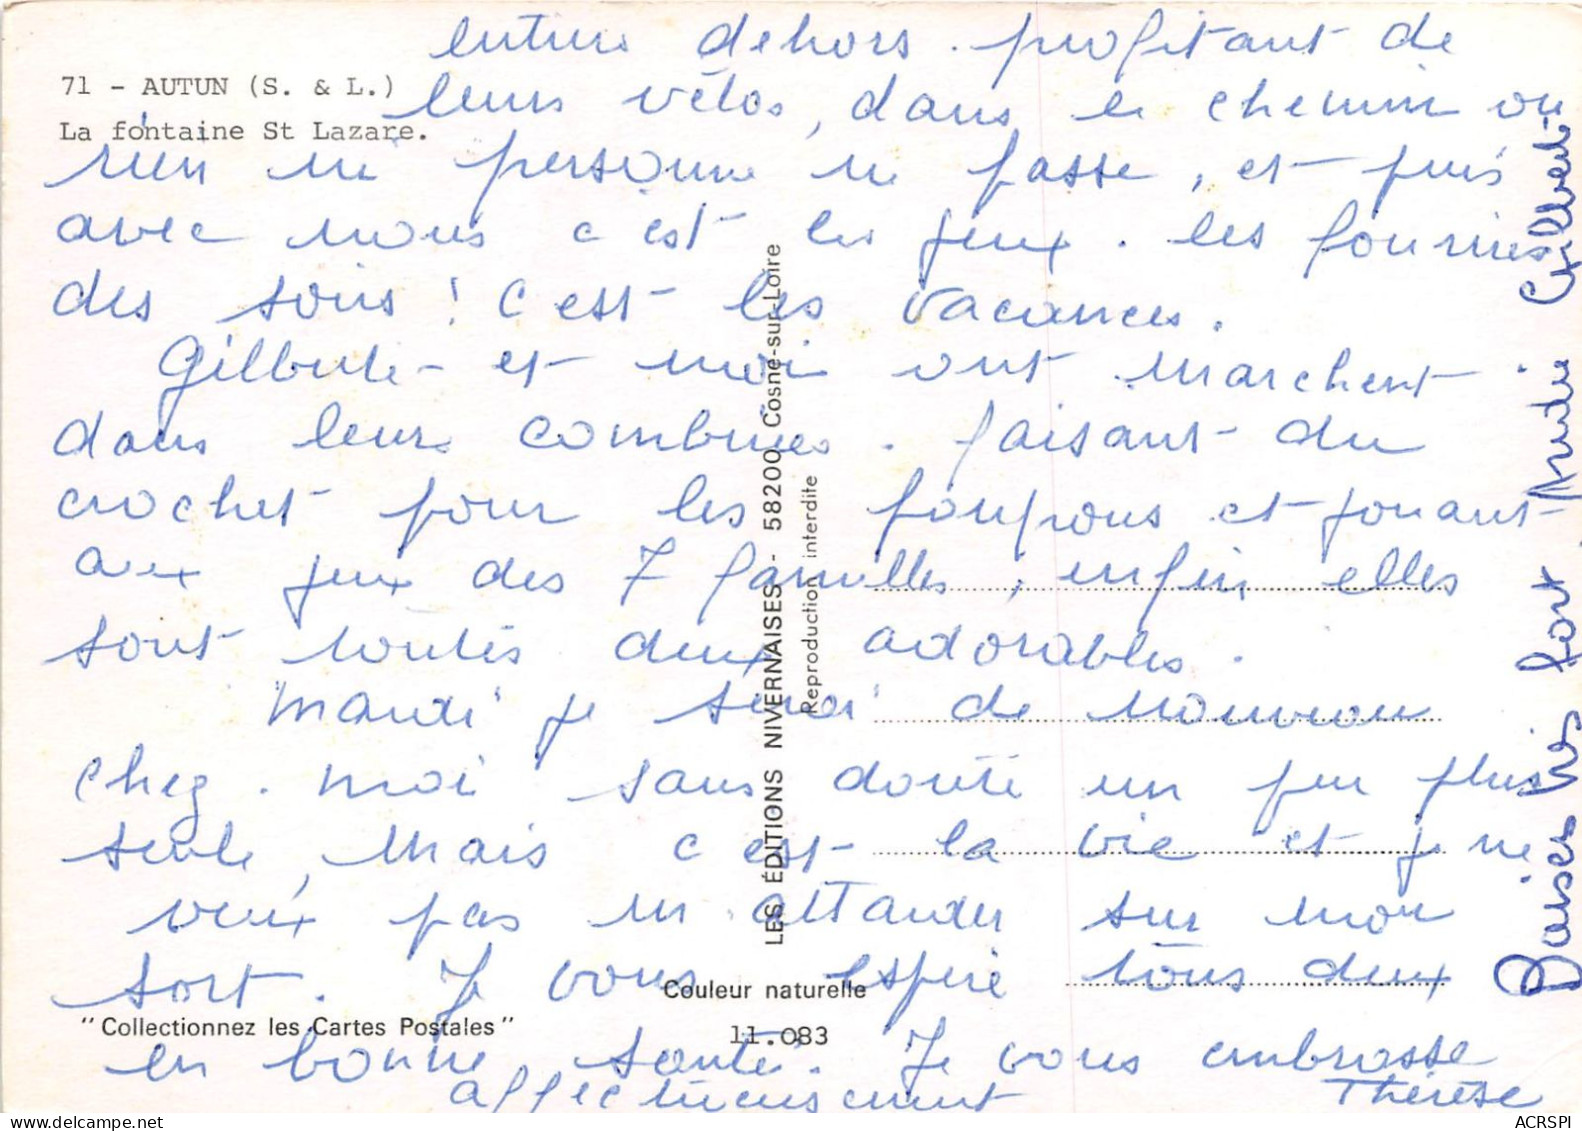 entière dehors. profitant de
71 - AUTUN (S. & L.)
leurs vélos, dans le chemin ou
La fontaine St Lazare.
rien ni personne ne passe, et puis
avec nous c'est les jeux. les fournies
des soins! C'est les vacances.
Gilberte et moi ont marchent
dans leurs combines. faisant du
crochet pour les poupons et jouant
aux jeux des 7 familles, enfin elles
sont toutes deux adorables.
Mardi je serai de nouveau
chez moi sans doute un peu plus
seule, mais c'est la vie et je ne
veux pas m'attarder sur mon
sort. Je vous espère tous deux
en bonne santé. Je vous embrasse
affectueusement Thérèse
Baisers très fort Gilbert
LES ÉDITIONS NIVERNAISES - 58200 Cosne-sur-Loire
Reproduction interdite
Couleur naturelle
"Collectionnez les Cartes Postales"
11.083
delcampe.net
ACRSPI